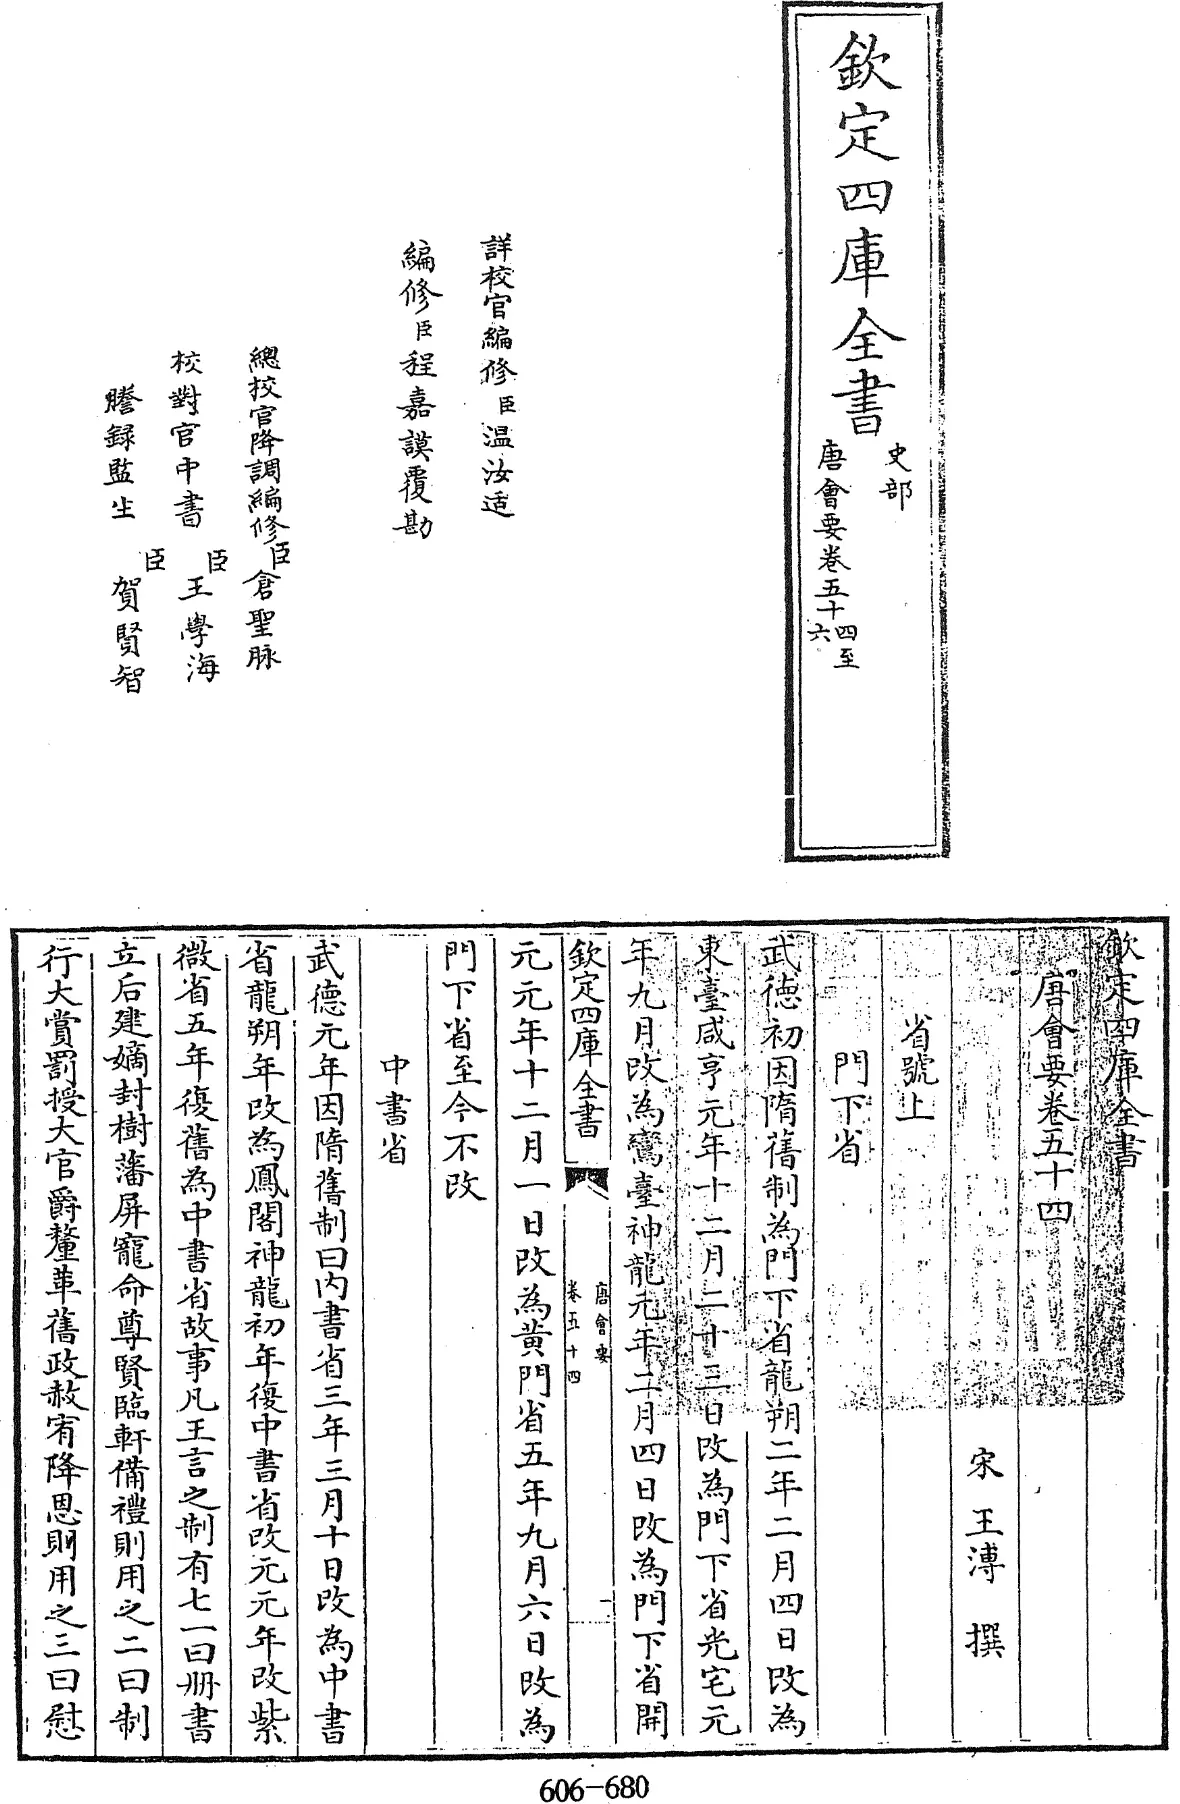 欽定四庫全書
史部
唐會要卷五十四至六
詳校官編修臣温汝适
編修臣程嘉謨覆勘
總校官降調編修臣倉聖脉
校對官中書臣王學海
謄録監生臣賀賢智
欽定四庫全書
唐會要卷五十四
宋王溥撰
省號上
門下省
武徳初因隋舊制為門下省龍朔二年二月四日改為
東臺咸亨元年十二月二十三日改為門下省光宅元
年九月改為鸞臺神龍元年二月四日改為門下省開
欽定四庫全書
唐會要
卷五十四
一
元元年十二月一日改為黄門省五年九月六日改為
門下省至今不改
中書省
武徳元年因隋舊制曰内書省三年三月十日改為中書
省龍朔年改為鳳閣神龍初年復中書省改元元年改紫
微省五年復舊為中書省故事凡王言之制有七一曰册書
立后建嫡封樹藩屏寵命尊賢臨軒備禮則用之二曰制
行大賞罰授大官爵釐革舊政赦宥降恩則用之三曰慰
606-680